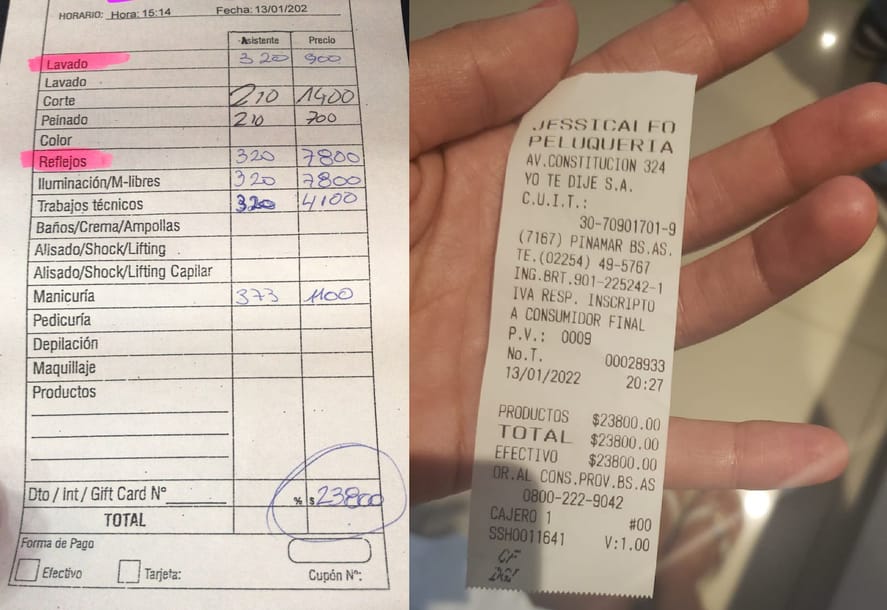 HORARIO: Hora: 15:14 Fecha: 13/01/202
Asistente Precio
Lavado 320 900
Lavado
Corte 210 1400
Peinado 210 700
Color
Reflejos 320 7800
Iluminación/M-libres 320 7800
Trabajos técnicos 320 4100
Baños/Crema/Ampollas
Alisado/Shock/Lifting
Alisado/Shock/Lifting Capilar
Manicuría 373 1100
Pedicuría
Depilación
Maquillaje
Productos
Dto / Int / Gift Card N° % $ 23800
TOTAL
Forma de Pago
Efectivo Tarjeta: Cupón N°:
JESSICALFO
PELUQUERIA
AV.CONSTITUCION 324
YO TE DIJE S.A.
C.U.I.T.:
30-70901701-9
(7167) PINAMAR BS.AS.
TE.(02254) 49-5767
ING.BRT.901-225242-1
IVA RESP. INSCRIPTO
A CONSUMIDOR FINAL
P.V.: 0009
No.T. 00028933
13/01/2022 20:27
PRODUCTOS $23800.00
TOTAL $23800.00
EFECTIVO $23800.00
OR.AL CONS.PROV.BS.AS
0800-222-9042
CAJERO 1 #00
SSH0011641 V:1.00
CF
DGI